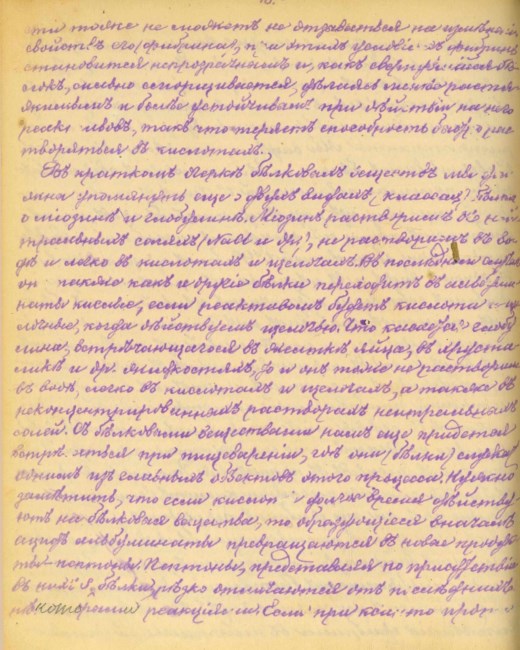 эти тоже не можетъ не отзываться на измѣненіи
свойствъ его (фибрина), при этихъ условіяхъ фибринъ
становится непрозрачнымъ и, какъ свернувшійся бѣ-
локъ, сильно сморщивается, дѣлаясь менѣе растя-
жимымъ и болѣе устойчивымъ при дѣйствіи на него
реактивовъ, такъ что теряетъ способность быстро рас-
творяться въ кислотахъ.
Въ краткомъ очеркѣ бѣлковыхъ веществъ мы дол-
жны упомянуть еще о двухъ видахъ (классахъ) бѣлка
о міозинѣ и глобулинѣ. Міозинъ растворимъ въ ней-
тральныхъ соляхъ (NaCl и др.), не растворимъ въ во-
дѣ и легко въ кислотахъ и щелочахъ. Въ послѣднемъ случаѣ
онъ также какъ и другіе бѣлки переходитъ въ альбуми-
наты кислые, если реактивомъ будетъ кислота и ще-
лочные, когда дѣйствуемъ щелочью. Что касается глобу-
лина, встрѣчающагося въ желткѣ яйца, въ хруста-
ликѣ и др. жидкостяхъ, то и онъ тоже не растворимъ
въ водѣ, легко въ кислотахъ и щелочахъ, а также въ
неконцентрированныхъ растворахъ нейтральныхъ
солей. Съ бѣлковыми веществами намъ еще придется
встрѣчаться при пищевареніи, гдѣ они (бѣлки) служатъ
однимъ изъ главныхъ объектовъ этого процесса. Нужно
замѣтить, что если кислоты долгое время дѣйству-
ютъ на бѣлковыя вещества, то образующіеся вначалѣ
ацидъ альбуминаты превращаются въ новые продук-
ты пептоны. Пептоны, представляя по присутствію
въ нихъ бѣлки, рѣзко отличаются отъ послѣднихъ
нѣкоторыми реакціями. Если при какой-то